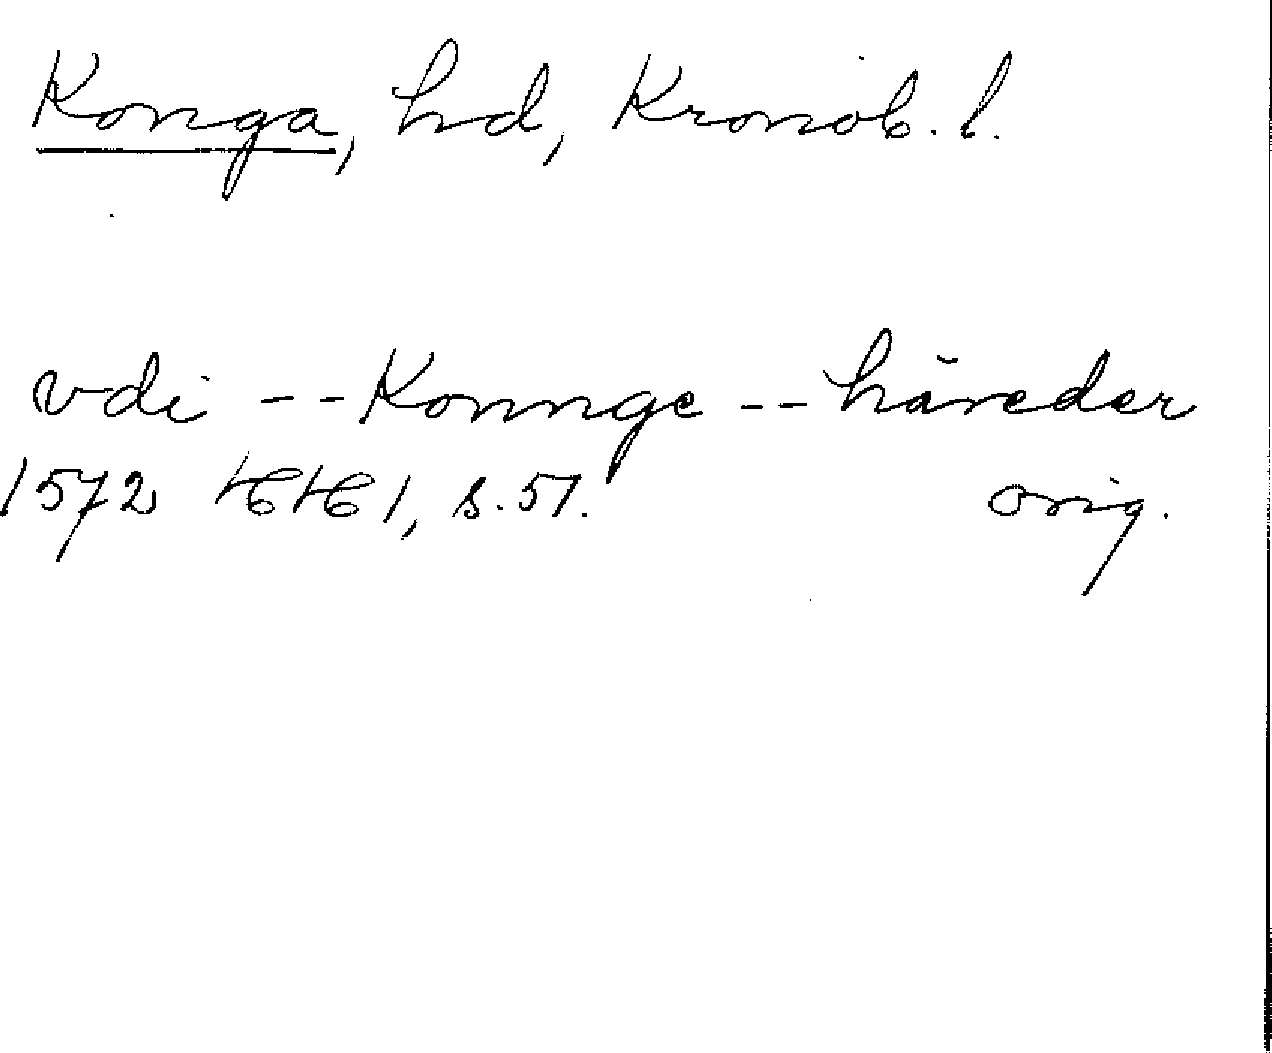 Konga, hd, Kronob. l.
vdi -- Konnge -- häreder
1572 HH 1, s. 51. orig.